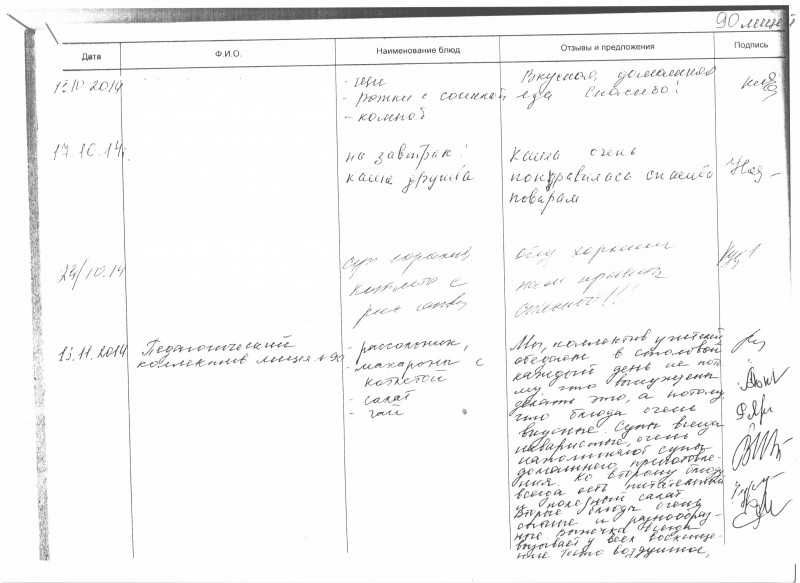 90 лицей
Дата Ф.И.О. Наименование блюд Отзывы и предложения Подпись
10 2014 - щи Вкусная, домашняя
- рожки с сосиской еда Спасибо!
- компот
17.10.14г. на завтрак: Каша очень
каша дружба понравилась спасибо
поварам
/10.14 суп гороховый обед хороший
котлета с нам
рис
13.11.2014 Педагогический - рассольник, Мы, коллектив учителей
коллектив лицея № 90 - макароны с обедаем в столовой
котлетой каждый день не пото
- салат му что вынуждены
- чай делать это, а потому,
что блюда очень
вкусные. Супы всегда
наваристые, очень
напоминают супы
домашнего приготовле-
ния. Ко второму блюду
всегда есть питательный
и полезный салат
Вторые блюда очень
сытные и разнообраз-
ные. Выпечка всегда
вызывает у всех восхище-
ние воздушное,